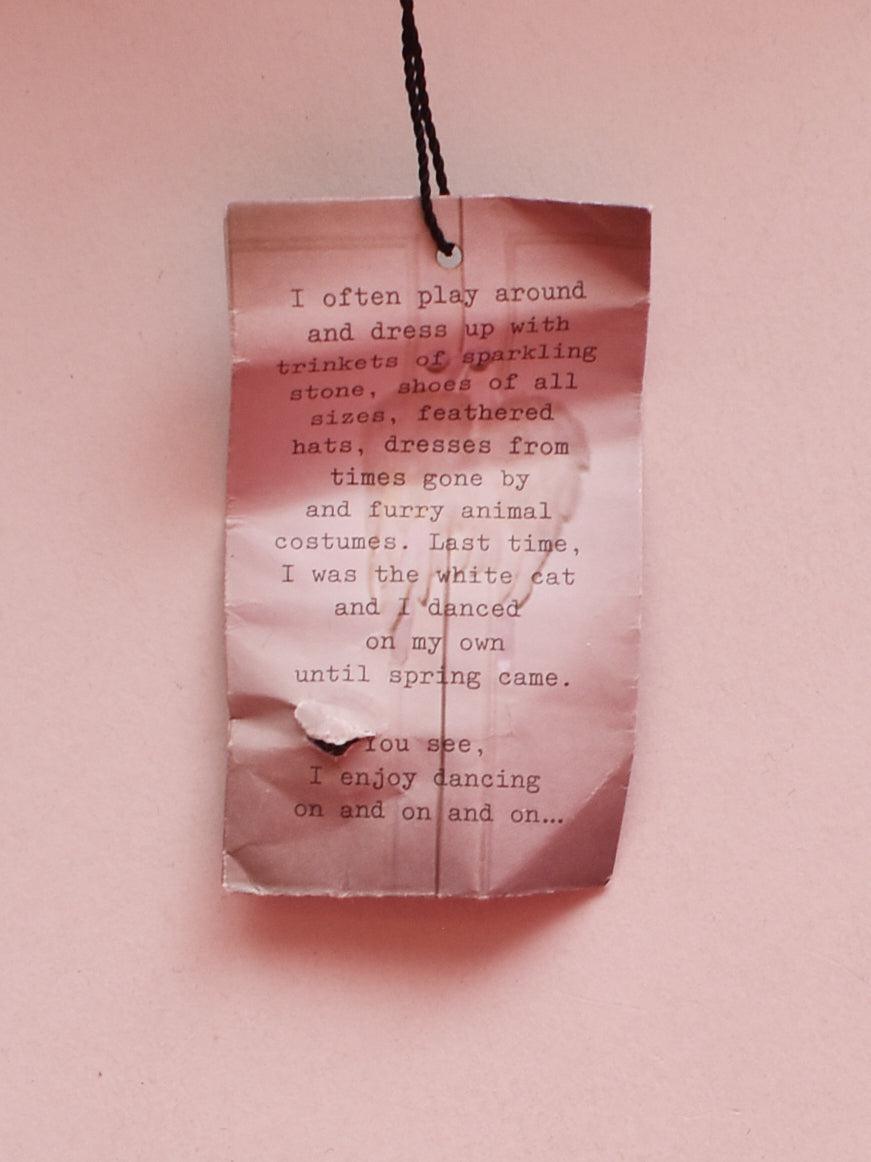 I often play around
and dress up with
trinkets of sparkling
stone, shoes of all
sizes, feathered
hats, dresses from
times gone by
and furry animal
costumes. Last time,
I was the white cat
and I danced
on my own
until spring came.
You see,
I enjoy dancing
on and on and on...